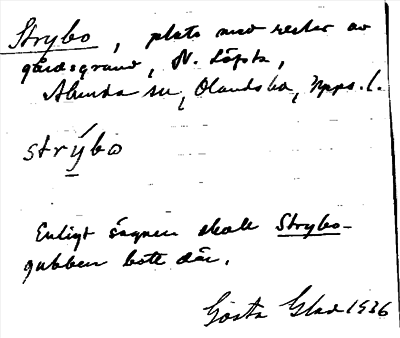 Strybo, plats med rester av
gårdsgrund, N. Löfsta,
Alunda sn, Olandshd, Upps. l.
strýbo
Enligt sägnen skall Strybo-
gubben bott där.
Gösta Glad 1936